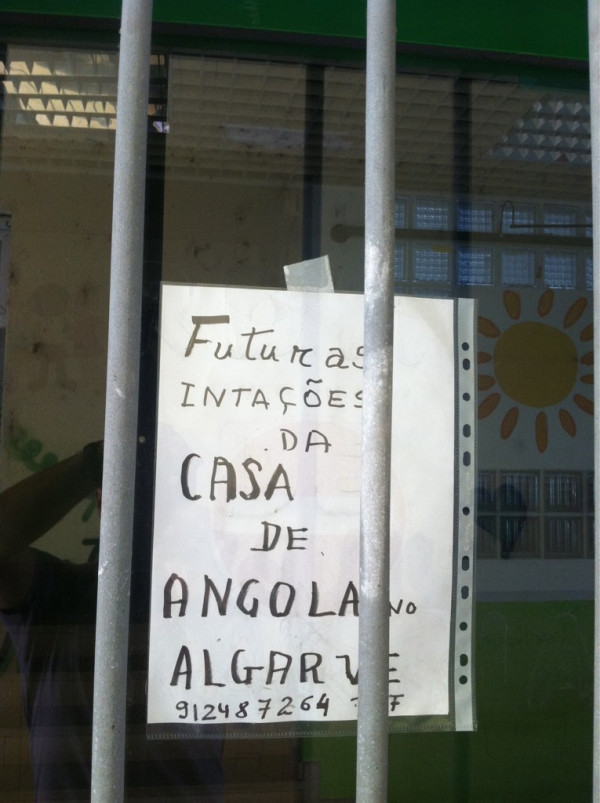 Futuras
INTAÇÕES
DA
CASA
DE
ANGOLA NO
ALGARVE
912487264